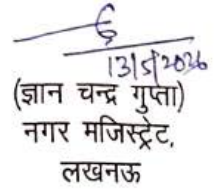 13/5/2026
(ज्ञान चन्द्र गुप्ता)
नगर मजिस्ट्रेट,
लखनऊ